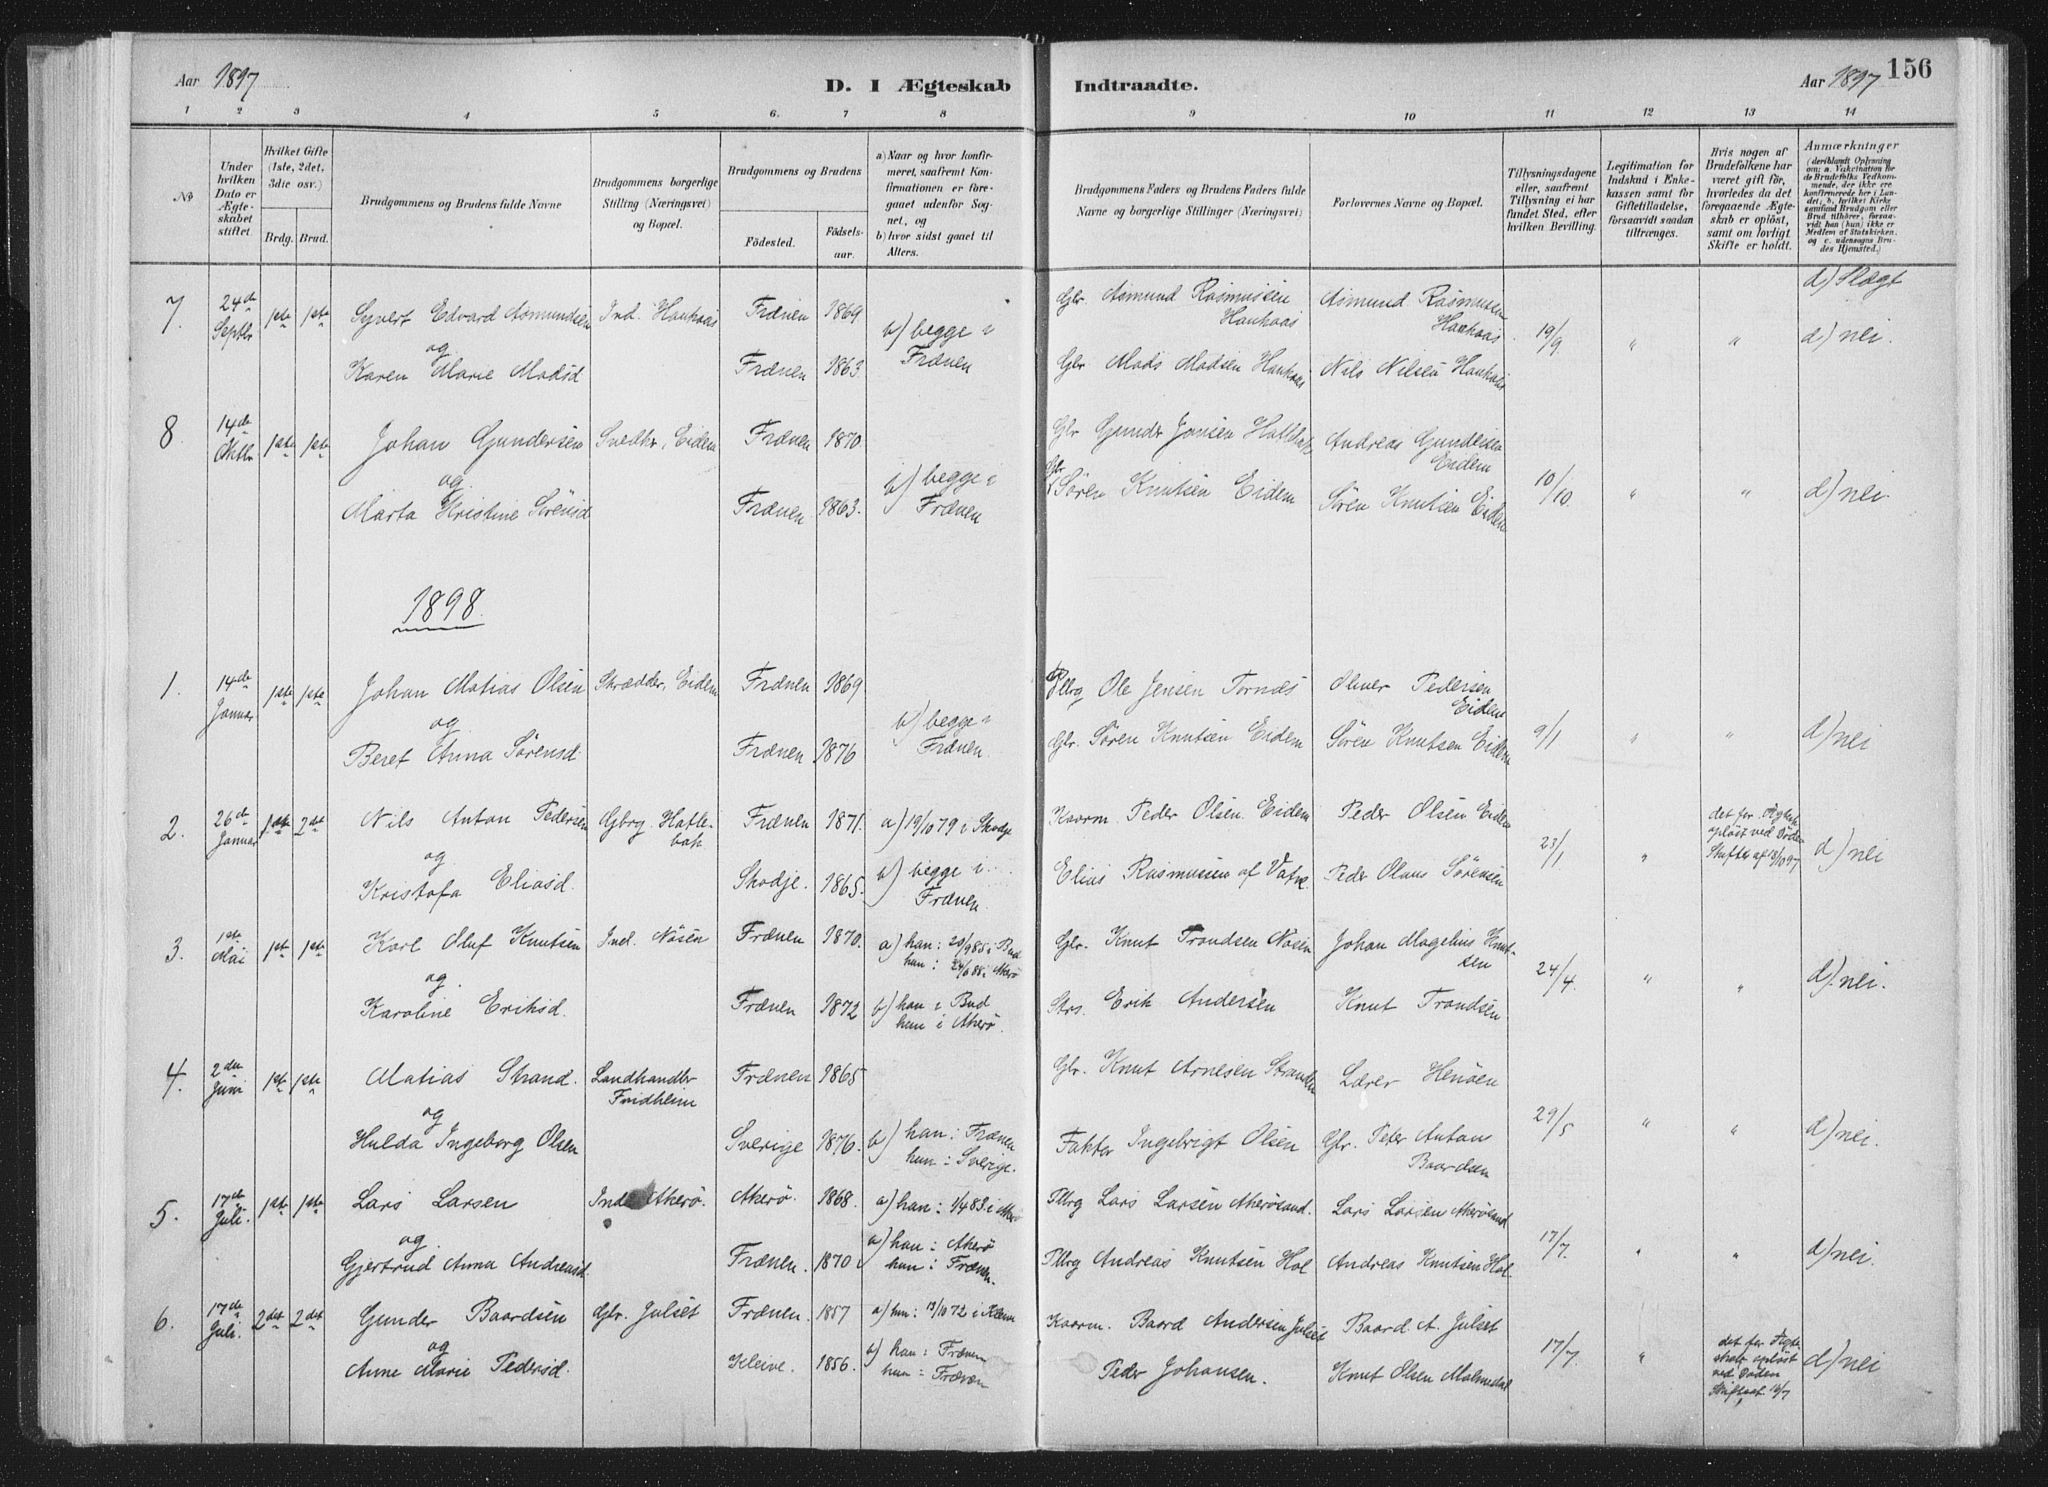 Aar 1897
D. I Ægteskab
Indtraadte.
Aar 1897 156
1 2 3 4 5 6. 7 8 9 10 11 12 13 14
№
Under hvilken Dato er Ægteskabet stiftet.
Hvilket Gifte (1ste, 2det, 3die osv.)
Brdg. Brud.
Brudgommens og Brudens fulde Navne
Brudgommens borgerlige Stilling (Næringsvei) og Bopæl.
Brudgommens og Brudens
Fødested. Fødselsaar.
a) Naar og hvor konfirmeret, saafremt Konfirmationen er foregaaet udenfor Sognet, og
b) hvor sidst gaaet til Alters.
Brudgommens Faders og Brudens Faders fulde Navne og borgerlige Stillinger (Næringsvei)
Forlovernes Navne og Bopæl.
Tillysningsdagene eller, saafremt Tillysning ei har fundet Sted, efter hvilken Bevilling.
Legitimation for Indskud i Enkekassen samt for Giftetilladelse, forsaavidt saadan tiltrænges.
Hvis nogen af Brudefolkene har været gift før, hvorledes da det foregaaende Ægteskab er opløst, samt om lovligt Skifte er holdt.
Anmærkninger (deriblandt Oplysning om: a. Vakcination for de Brudefolks Vedkommende, der ikke ere konfirmerede her i Landet; b. hvilket Kirkesamfund Brudgom eller Brud tilhører, forsaavidt han (hun) ikke er Medlem af Statskirken, og c. udensogns Brudes Hjemsted.)
d) Slægt
7. 24de Septbr 1ste 1ste Syvert Edvard Asmundsen Ind. Haukaas Frænen 1869 Gbr. Asmund Rasmussen Haukaas Asmund Rasmussen Haukaas
og b) begge i Frænen 19/9. " " d) nei.
Karen Marie Madsd Frænen 1863 Gbr Mads Madsen Haukaas Nils Nilsen Haukaas
8 14de Oktbr 1ste 1ste Johan Gundersen Snedkr, Eidem Frænen 1870 Gbr Gunder Jonsen Andreas Gundersen Eidem
og b) begge i Frænen 10/10. " " d) nei.
Marta Kristine Sørensd Frænen 1863. Gbr Søren Knutsen Eidem Søren Knutsen Eidem
1898
1. 14de Januar 1ste 1ste Johan Matias Olsen Skrædder, Eidem Frænen 1869 Ole Jensen Tornes Oliver Pedersen Eidem
og b) begge i Frænen. 9/1 " " d) nei
Beret Anna Sørensd Frænen 1876 Gbr. Søren Knutsen Eidem Søren Knutsen Eidem
2. 26de Januar 1ste 2det Nils Anton Pedersen Gbrg. Hatlebak Frænen 1871. a) 19/10 79 i Skodje Kaarm. Peder Olsen Eidem Peder Olsen Eidem
og b) begge i Frænen. 23/1 " det før. Ægtesk. opløst ved Døden Skifte af 18/10 97 d) nei
Kristofa Eliasd. Skodje. 1865. Elias Rasmussen af Vatne Peder Olaus Sørensen
3. 1ste Mai 1ste 1ste Karl Oluf Knutsen Ind. Nøsen Frænen 1870. a) han: 20/9 85 i Bud hun: 24/6 88 i Akerø Gbr. Knut Trondsen Nøsen Johan Magelius Knutsen
og. 24/4. " " d) nei.
Karoline Eriksd. Frænen 1872 b) han i Bud hun i Akerø. Strs. Erik Andersen Knut Trondsen.
4. 2den Juni 1ste 1ste Matias Strand. Landhandler Fridheim Frænen 1865 Gbr. Knut Arnesen Stranden Lærer Henøen
og 29/5 " " d) nei.
Hulda Ingeborg Olsen Sverige 1876. b) han: Frænen hun: Sverige. Faktor Ingebrigt Olsen Gbr. Peter Anton Baardsen
5. 17de Juli. 1ste 1ste Lars Larsen Ind Akerø. Akerø. 1868. a) han: 1/4 83 i Akerø Pllrg Lars Larsen Akerøsand. Lars Larsen Akerøsand
og. 17/7. " " d) nei.
Gjertrud Anna Andreasd. Frænen. 1870 a) han: Akerø hun: Frænen. Pllrg Andreas Knutsen Hol Andreas Knutsen Hol.
6. 17de Juli. 2det 2det Gunder Baardsen Gbr. Julset Frænen. 1857 a) hun: 13/10 72 i Kleive Kaarm. Baard Andersen Julset Baard A. Julset
og 17/7. " det før Ægteskab opløst ved Døden d) nei
Anne Marie Pedersd. Kleive. 1856. b) han: Frænen hun: Frænen Peder Johansen. Knut Olsen Malmedal